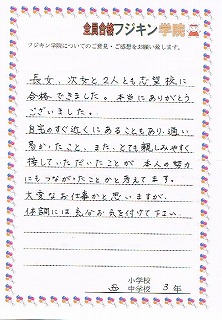 全員合格フジキン学院
フジキン学院についてのご意見・ご感想をお願い致します。
長女、次女と2人とも志望校に
合格できました。本当にありがとう
ございました。
自宅のすぐ近くにあることもあり、通い
易かったこと、また、とても親しみやすく
接していただいたことが本人の努力
にもつながったことかと考えてます。
大変なお仕事かと思いますが、
体調には気をお気を付けて下さい。
小学校
西 中学校 3年